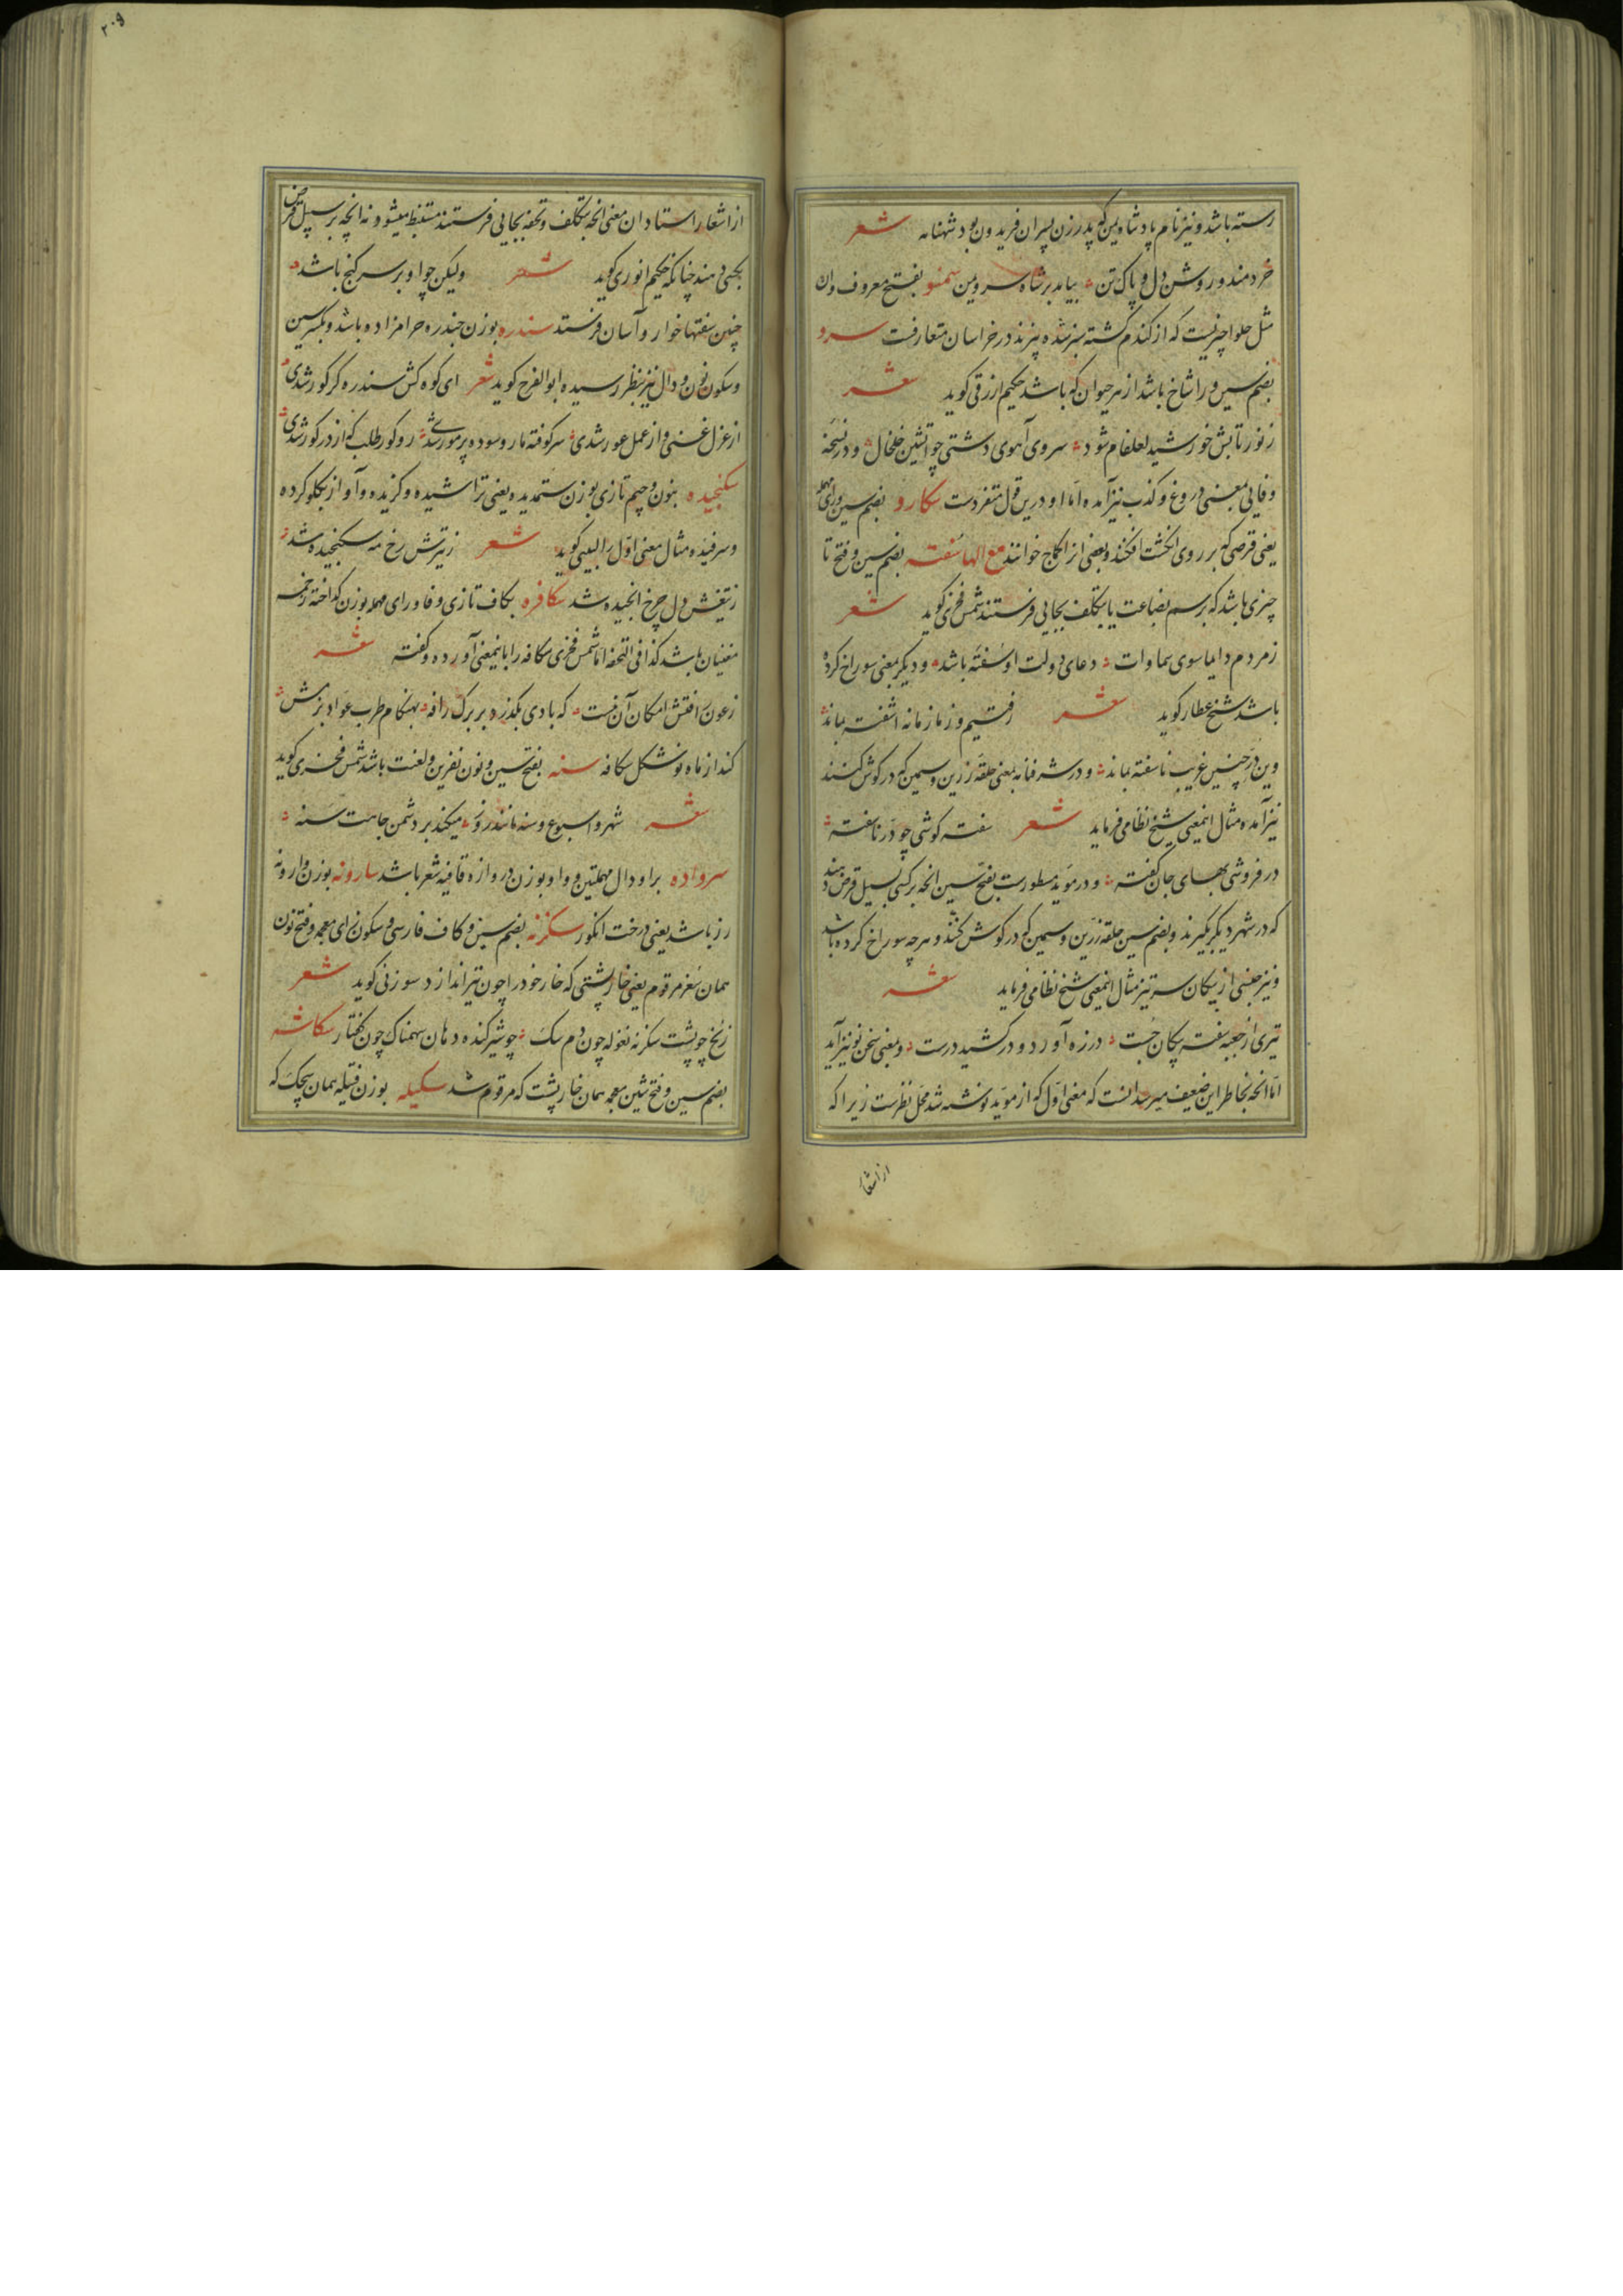 رسته باشد و نیز نام پادشاه یمن که پدر زن پسران فریدون بود شهنامه شعر
خردمند و روشن دل و پاک تن بیامد بر شاه سرو یمن سمنو بفتح معروف وان
مثل حلوا چیزیست که از گندم گشته سبز شده پزند در خراسان متعارفست سرو
بضم سین و را شاخ باشد از هر حیوان که باشد حکیم ازرقی کوید شعر
ز نور تابش خورشید لعلفام شود سروی آهوی دشتی چو آتشین خلخال و در نسخه
وفایی بمعنی دروغ و کذب نیز آمده اما او درین قول متفردست سکارو بضم سین و رای مهمله
یعنی قرصی که بر روی انکشت افکنند و بعضی از انکلاج خوانند مع الها سفته بضم سین و فتح تا
چیزی باشد که برسم بضاعت یا بتکلف بجایی فرستند شمس فخری کوید شعر
ز مردم دایما سوی سماوات دعای دولت او سفته باشد و دیکر بمعنی سوراخ کرده
باشد شیخ عطار کوید شعر رفتیم و ز ما زمانه آشفته بماند
وین در چنین غریب ناسفته بماند و در شرفنامه بمعنی حلقه زرین و سیمین که در کوش کنند
نیز آمده مثال اینمعنی شیخ نظامی فرماید شعر سفته کوشی چو در ناسفته
در فروشی بهای جان کفته و در موید مسطورست بفتح سین انچه بر کسی بسبیل قرض دهند
که در شهر دیکر بکیرند و بضم سین حلقه زرین و سیمین که در کوش کنند و هر چه سوراخ کرده باشد
و نیز جنسی از پیکان سر تیز مثال اینمعنی شیخ نظامی فرماید شعر
تیری از جعبه سفته پیکان جست در زه آورد و در کشید درست و بمعنی سخن نو نیز آید
اما انچه بخاطر این ضعیف میرسد انست که معنی اول که از موید نوشته شد محل نظرست زیرا که
از اشعار
۲۰۹
از اشعار استادان معنی انچه بتکلف و تحفه بجایی فرستند مستنبط میشود نه انچه بر سبیل قرض
بکسی دهند چنانکه حکیم انوری کوید شعر ولیکن چو او بر سر کنج باشد
چنین سفتها خوار و آسان فرستد سندره بوزن جندره حرامزاده باشد و بکسر سین
و سکون نون و دال نیز بنظر رسیده ابوالفرج کوید شعر ای کوه کش سندره کر کور شدی
از عزل غنی و از عمل عور شدی سرکوفته مار و سوده پر مور شدی رو کور طلب که از در کور شدی
سکنجیده بنون و جیم تازی بوزن ستمدیده یعنی تراشیده و کزیده و آواز بکلو کرده
و سرفیده مثال معنی اول رالبیبی کوید شعر ز تیرش رخ مه سکنجیده شد
ز تیغش دل چرخ انجیده شد سکافره بکاف تازی و فا و رای مهمله بوزن کداخته زخمه
مغنیان باشد کذا فی التحفه اما شمس فخری سکافه را باینمعنی آورده و کفته شعر
ز عون رافتش امکان آن نیست که بادی بکذرد بر برک رافه بهنکام طرب عواد بزمش
کند از ماه نو شکل سکافه سنه بفتح سین و نون نفرین و لعنت باشد شمس فخری کوید
شعر شهر و اسبوع و سنه مانند روز میکند بر دشمن جاهت سنه
سرواده برا و دال مهملتین و واو بوزن دروازه قافیه شعر باشد سارونه بوزن وارونه
رز باشد یعنی درخت انکور سکزنه بضم سین و کاف فارسی و سکون زای معجمه و فتح نون
همان سغر مرقوم یعنی خارپشتی که خار خود را چون تیر اندازد سوزنی کوید شعر
زنخ چو پشت سکزنه نغوله چون دم سک چو شیر کنده دهان سهمناک چون کفتار سکاشه
بضم سین و فتح شین معجمه همان خارپشت که مرقوم شد سکیله بوزن فتیله همان سچک که